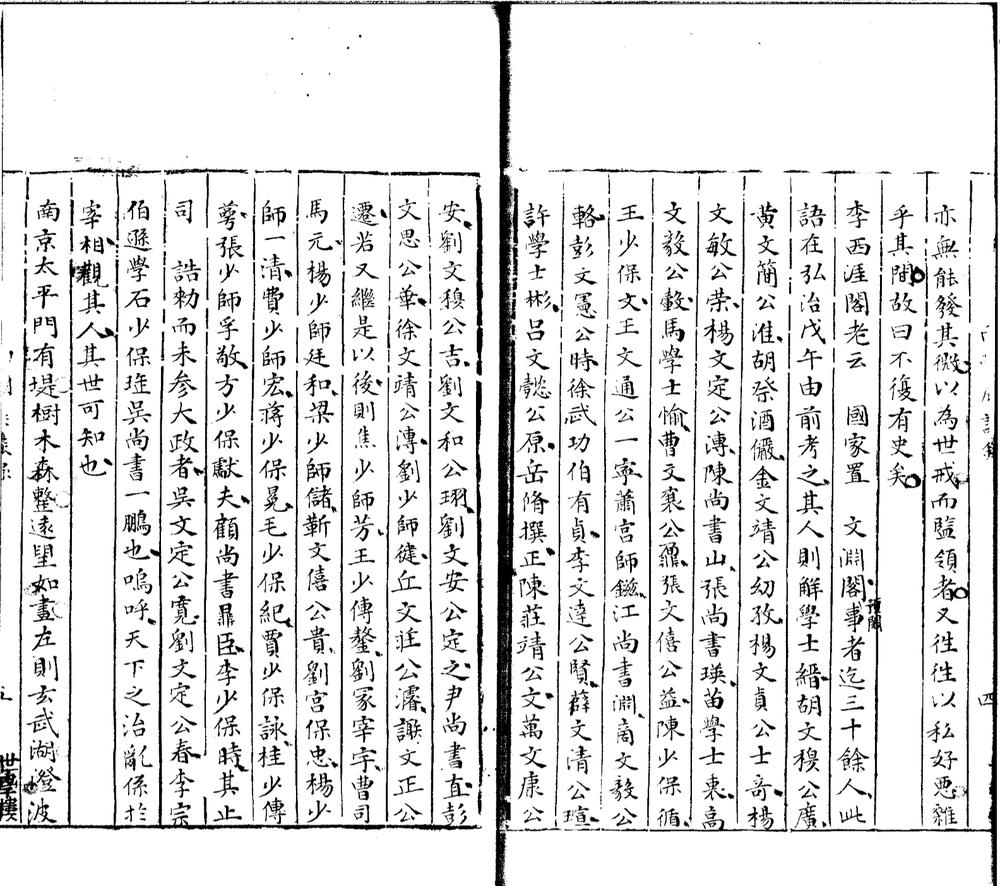 亦無能發其微以為世戒而監領者又徃徃以私好惡雜
乎其間故曰不復有史矣
李西涯閣老云　國家置　文淵閣預閣事者迄三十餘人此
語在弘治戊午由前考之其人則解學士縉胡文穆公廣
黄文簡公淮胡祭酒儼金文靖公幼孜楊文貞公士奇楊
文敏公榮楊文定公溥陳尚書山張尚書瑛苗學士衷高
文毅公轂馬學士愉曹文襄公鼐張文僖公益陳少保循
王少保文王文通公一寧蕭宮師鎡江尚書淵商文毅公
輅彭文憲公時徐武功伯有貞李文達公賢薛文清公瑄
許學士彬吕文懿公原岳脩撰正陳莊靖公文萬文康公
安劉文穆公吉劉文和公珝劉文安公定之尹尚書直彭
文思公華徐文靖公溥劉少師徤丘文莊公濬謝文正公
遷若又繼是以後則焦少師芳王少傅鏊劉冢宰宇曹司
馬元楊少師廷和梁少師儲靳文僖公貴劉宫保忠楊少
師一清費少師宏蔣少保冕毛少保紀賈少保詠桂少傅
萼張少師孚敬方少保獻夫顧尚書鼎臣李少保時其止
司　誥勑而未参大政者吳文定公寛劉文定公春李宗
伯遜學石少保珤吳尚書一鵬也嗚呼天下之治亂係於
宰相觀其人其世可知也
南京太平門有堤樹木森整遠望如畫左則玄武湖澄波
四
五
世學樓